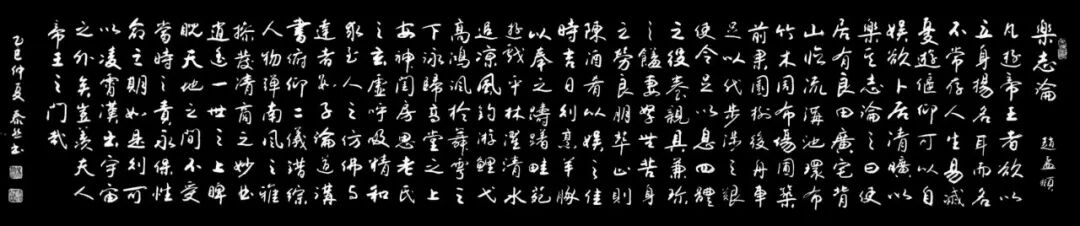 樂志論
趙孟頫
凡遊帝王者欲以
立身揚名耳而名
不常存人生易滅
憂遊偃仰可以自
娛欲卜居清曠以
樂其志論之曰使
居有良田廣宅背
山臨流溝池環布
竹木周布場圃築
前果園樹後舟車
足以代步涉之艱
使令足以息四體
之役養親具兼珍
之饍妻孥無苦身
之勞良朋萃止則
陳酒肴以娛之佳
時吉日則烹羊豚
以奉之躊躇畦苑
遊戲平林濯清水
追涼風釣游鯉弋
高鴻風於舞雩之
下詠歸高堂之上
安神閨房思老氏
之玄虛呼吸精和
求至人之仿佛與
達者數子論道講
書俯仰二儀錯綜
人物彈南風之雅
操發清商之妙曲
逍遙一世之上睥
睨天地之間不受
當時之責永保性
命之期如是則可
以凌霄漢出宇宙
之外矣豈羨夫入
帝王之門哉
乙巳仲夏